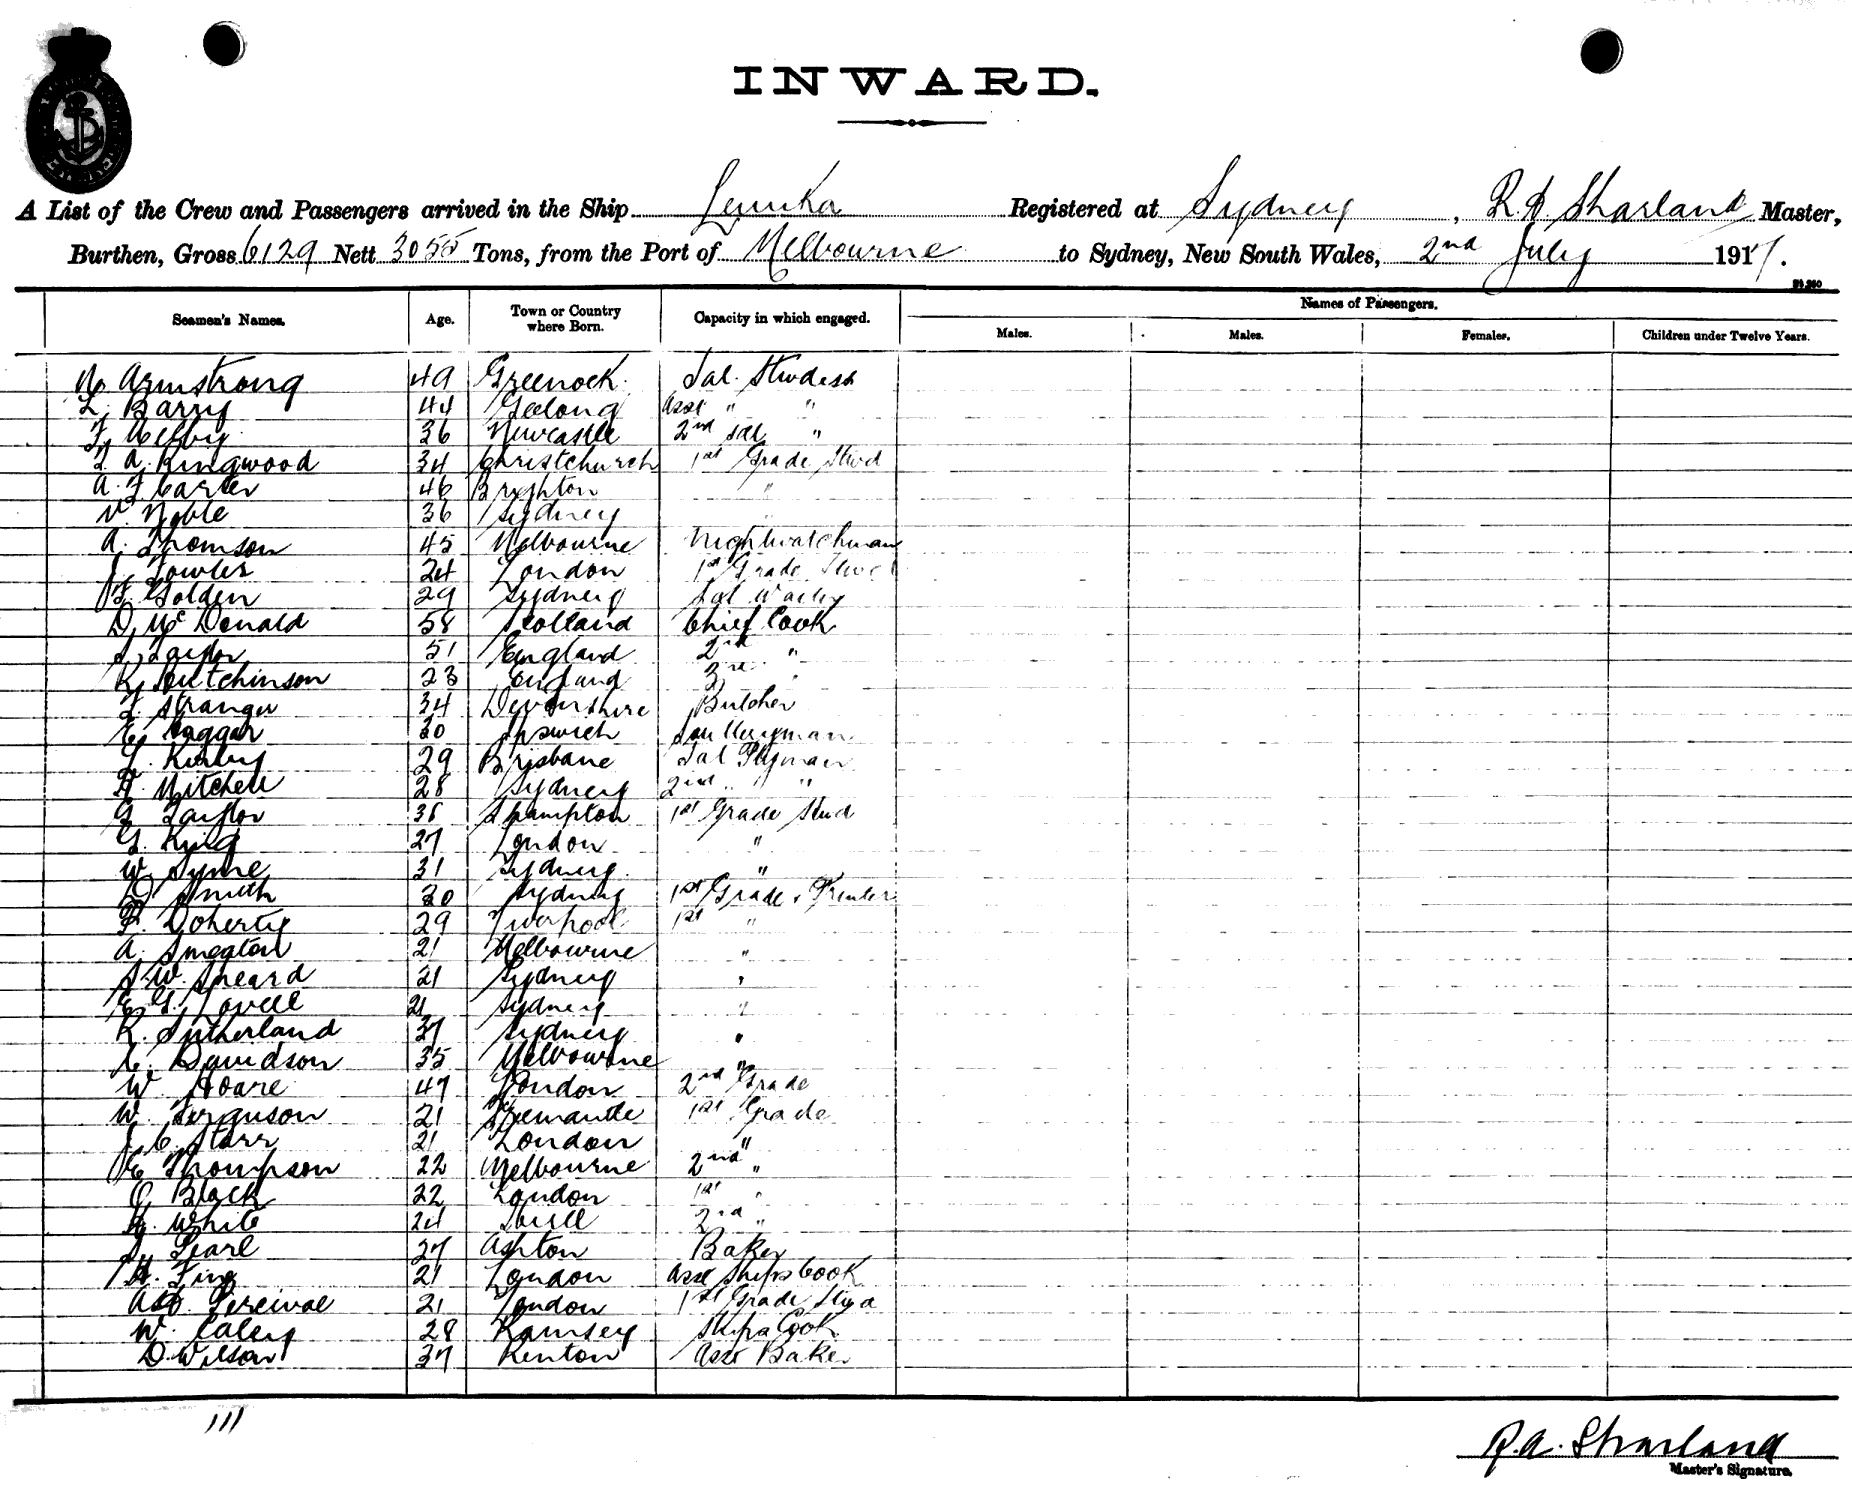 INWARD.
A List of the Crew and Passengers arrived in the Ship Registered at Sydney, R A Sharland Master,
Burthen, Gross 6129 Nett 3055 Tons, from the Port of Melbourne to Sydney, New South Wales, 2nd July 1917.
Names of Passengers.
Seamen's Names. Age. Town or Country where Born. Capacity in which engaged. Males. Males. Females. Children under Twelve Years.
Armstrong 49 Greenock Sal. Stwdess
L. Barry 44 Geelong Asst " "
36 Newcastle 2nd Sal "
A. Ringwood 34 Christchurch 1st Grade Stwd
A. F. Carter 46 Brighton "
V. Noble 36 Sydney "
A. Thomson 45 Melbourne Nightwatchman
J. Fowler 24 London 1st Grade Stwd
Golden 29 Sydney Sal
D. McDonald 58 Scotland Chief Cook
Taylor 51 England 2nd "
R. Hutchinson 23 England 3rd "
Stranger 34 Devonshire Butcher
E. Haggar 30 Ipswich Sculleryman
29 Brisbane Sal Ptyman
Mitchell 28 Sydney 2nd " "
Taylor S'hampton 1st Grade Stwd
G. King 27 London "
W. Syme 31 Sydney "
Smith 20 Sydney 1st Grade & Printer
P. Doherty 29 Liverpool 1st "
A. Smeaton 21 Melbourne "
S. W. Sheard 21 Sydney "
E. G. Lovell 21 Sydney "
R. Sutherland 37 Sydney "
Davidson 35 Melbourne "
W. Hoare 47 London 2nd Grade
W. Ferguson 21 Fremantle 1st Grade
J. C. Starr 21 London "
E. Thompson 22 Melbourne 2nd "
Black 22 London 1st "
H. White 24 Hull 2nd "
27 Ashton Baker
21 London Asst Ships Cook
Percival 21 London 1st Grade Stwd
W. Caley 28 Ramsey Ships Cook
D. Wilson 37 Kenton Asst Baker
111
R. A. Sharland
Master's Signature.